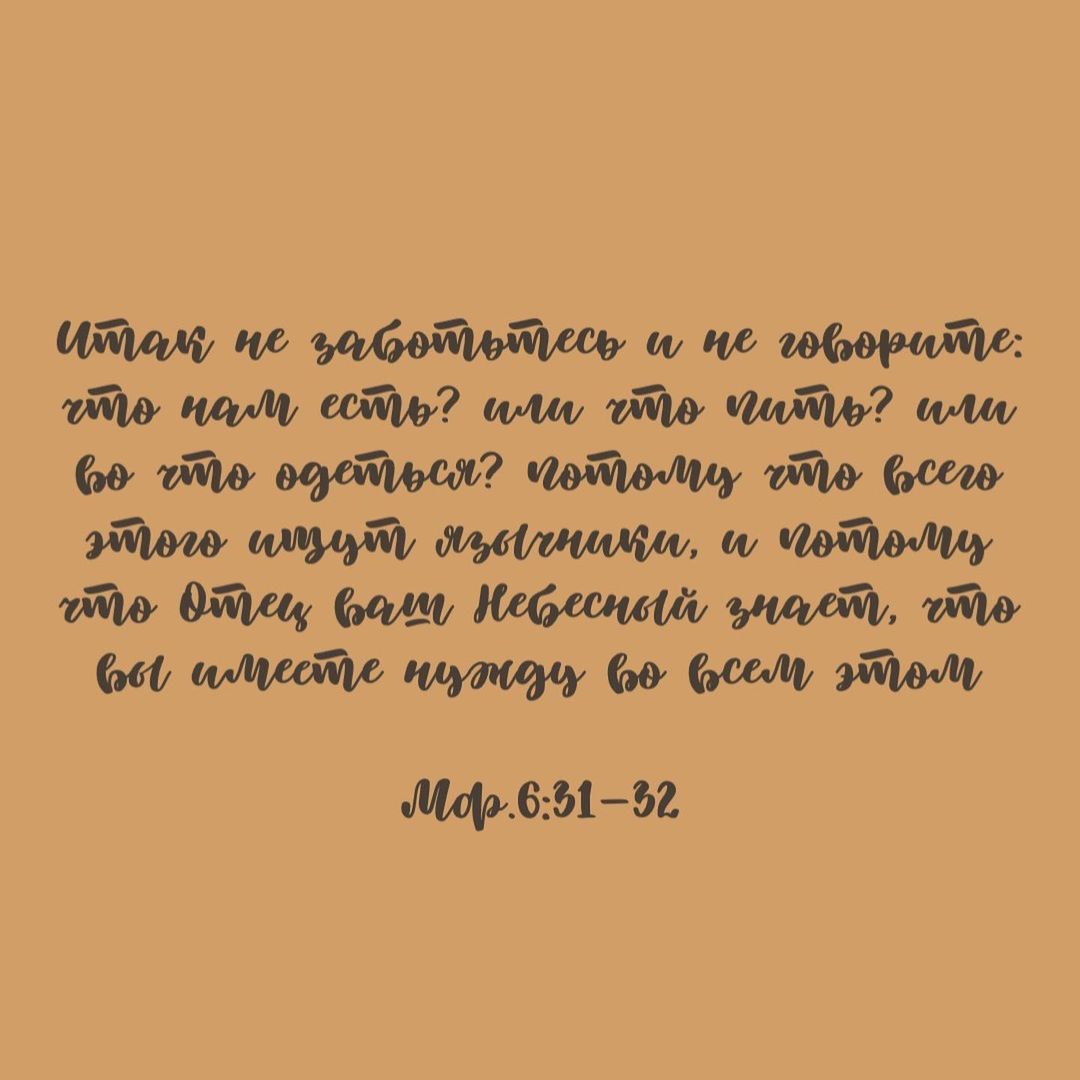 Итак не заботьтесь и не говорите:
что нам есть? или что пить? или
во что одеться? потому что всего
этого ищут язычники, и потому
что Отец ваш Небесный знает, что
вы имеете нужду во всем этом
Мф.6:31-32